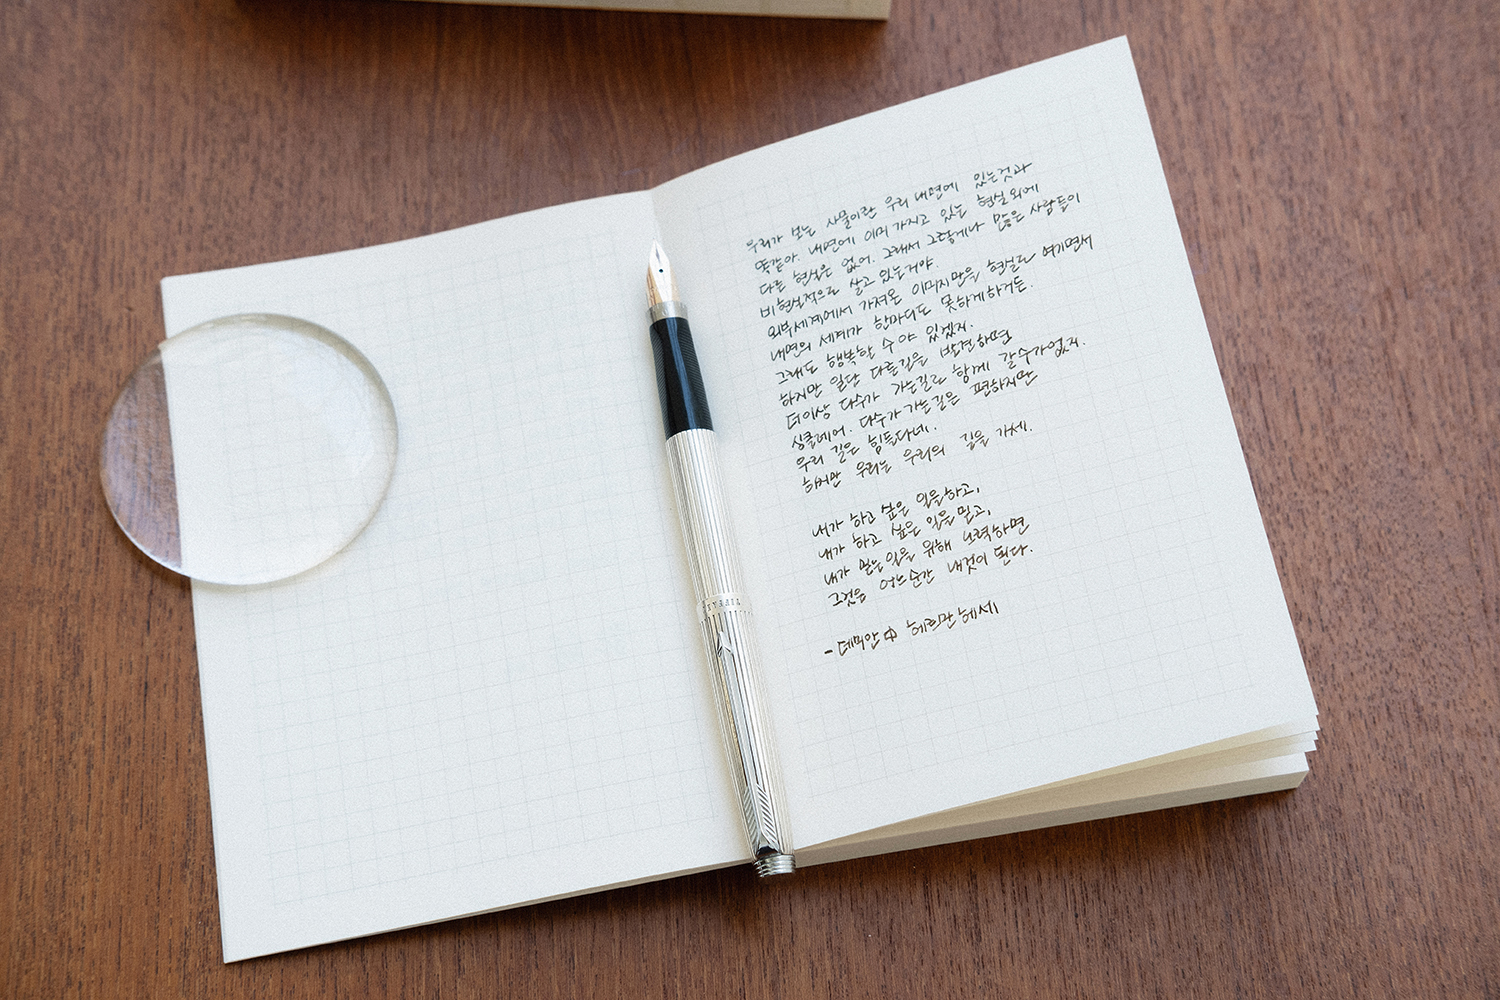 우리가 보는 사물이란 우리 내면에 있는것과
똑같아. 내면에 이미 가지고 있는 현실외에
다른 현실은 없어. 그래서 그렇게나 많은 사람들이
비현실적으로 살고 있는거야.
외부세계에서 가져온 이미지만을 현실로 여기면서
내면의 세계가 한마디도 못하게하거든.
그래도 행복할 수야 있겠지.
하지만 일단 다른길을 발견하면
더이상 다수가 가는길로 함께 갈수가없지.
싱클레어. 다수가 가는길은 편하지만
우리 길은 힘들다네.
하지만 우리는 우리의 길을 가세.
내가 하고 싶은 일을하고,
내가 하고 싶은 일을 믿고,
내가 믿는 일을 위해 노력하면
그것은 어느순간 내것이 된다.
- 데미안 中 헤르만 헤세